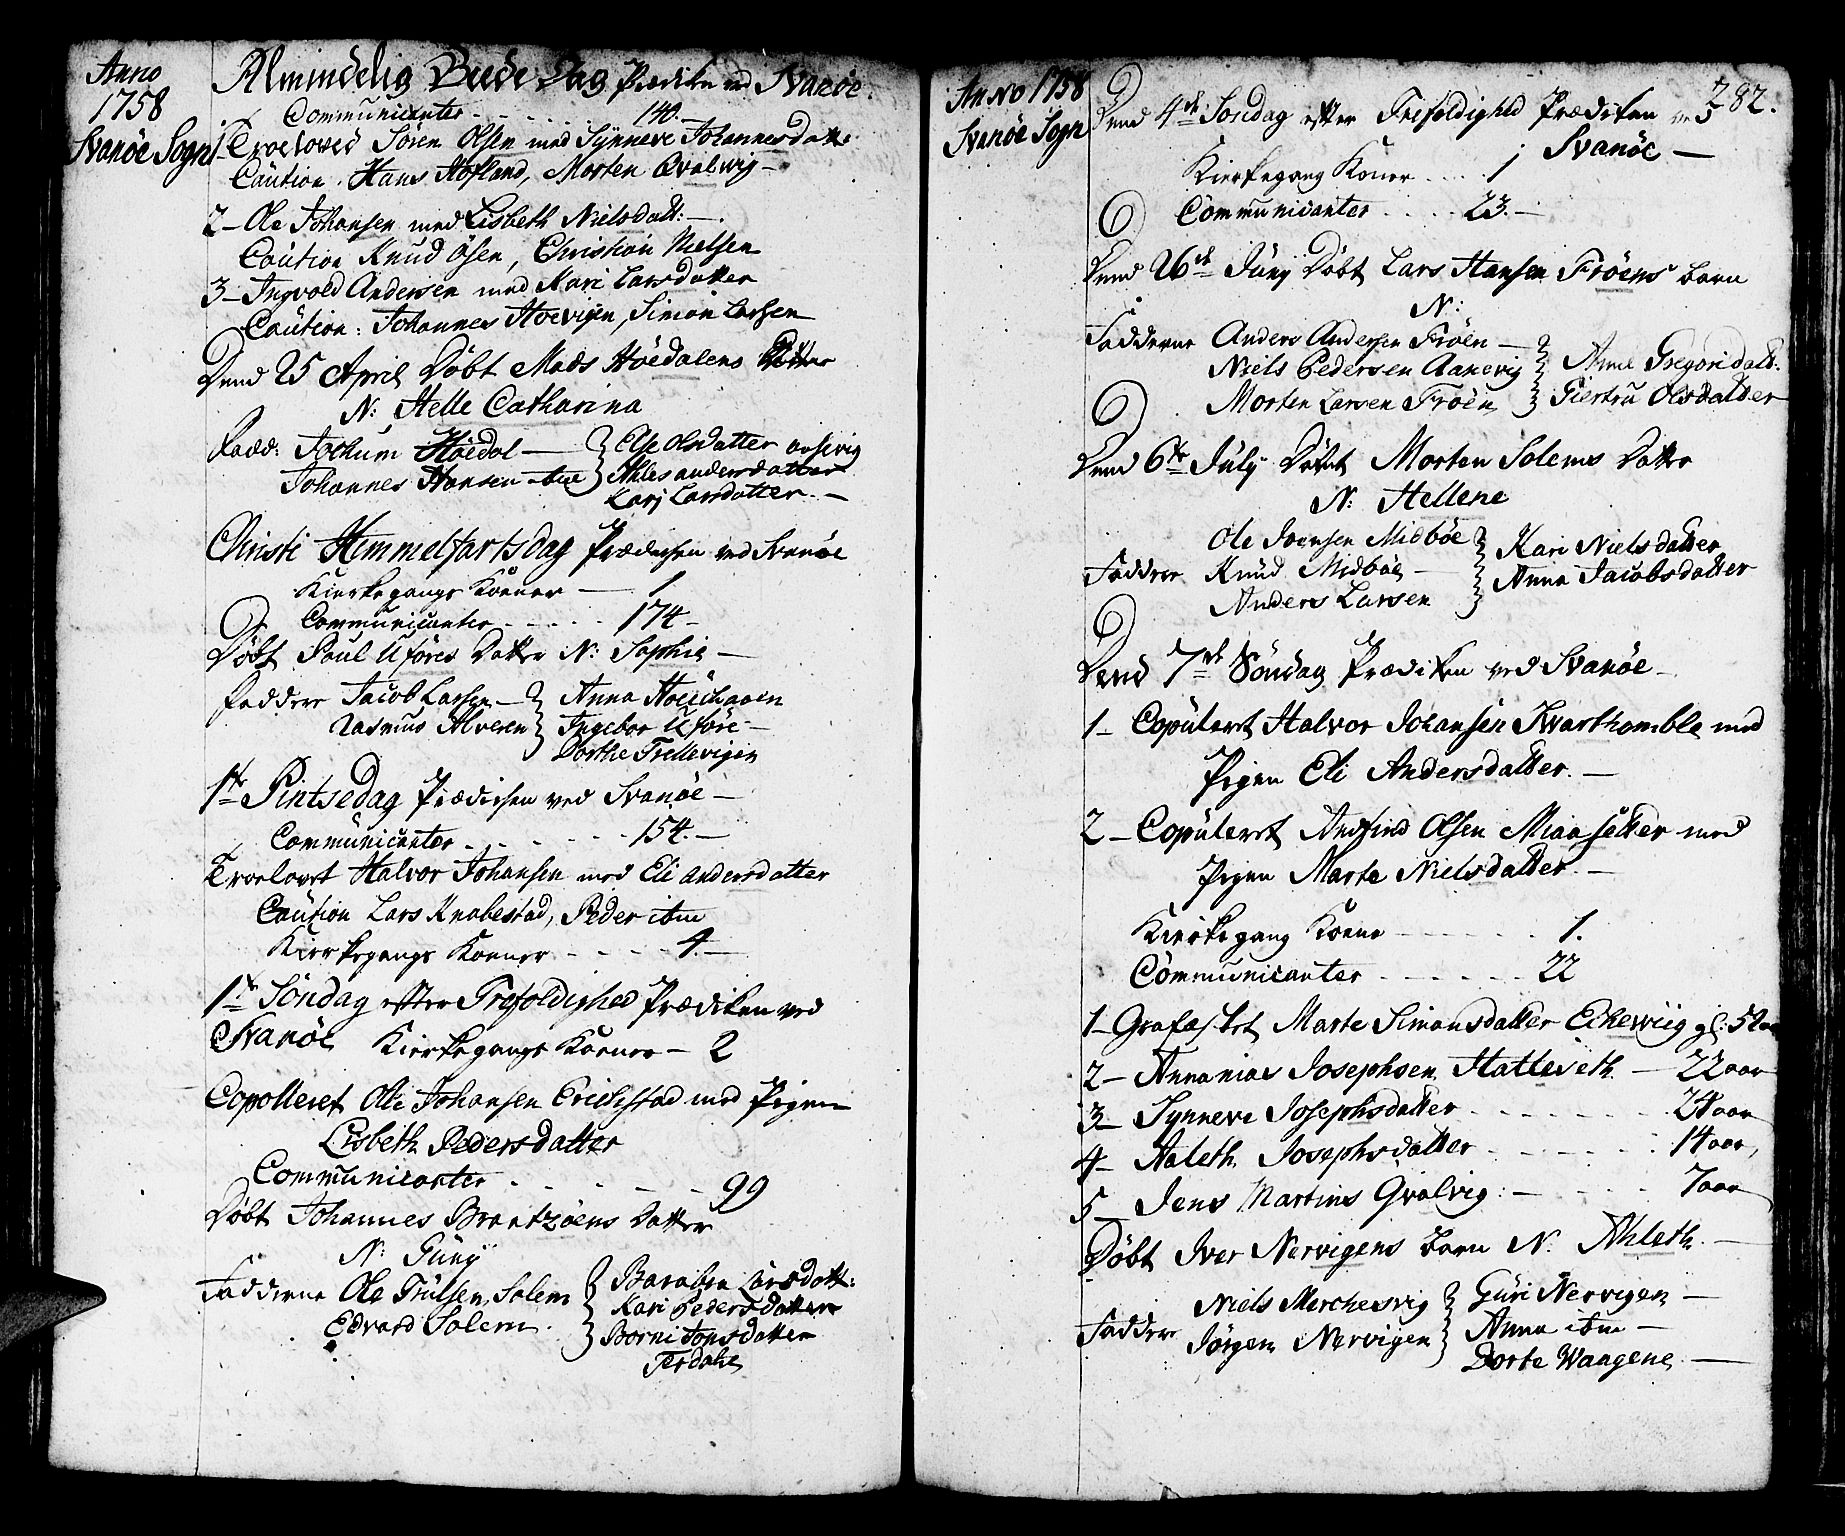 Anno
1758
Svanöe Sogn
Almindelig Beede Dag Prædiken ved Svanöe.
Communicanter - - - - - 140.
1- Troeloved Sören Olsen med Synneve Johannesdatt:
Caution. Hans Hofland, Morten Qvalwig -
2- Ole Johansen med Lisbeth Nielsdatt: -
Caution Knud Ösen, Christian Nielsen
3- Ingvold Andersen med Kari Larsdatter
Caution: Johannes Hoevigen, Simon Larsen
Dend 25 April Döbt Mads Höedalens Datter
N: Helle Catharina
Fadd: Jochum Höedal - Else Olsdatter
Johannes Hansen ibm Ahlesandersdatter
Karj Larsdatter. -
Christi Himmelfartsdag Prædicken ved Svanöe
Kierkegangs Koener - 1
Communicanter - - - - - 174 -
Döbt Paul Uföres Datter N: Sophie -
Faddere Jacob Larsen - Anna Hoeühavn
Rasmus Alveren Ingebor Uföre -
Dorthe Trellevigen
1te Pintsedag Prædicken ved Svanöe -
Communicanter - - - - - 154. -
Troelovet Halvor Johansen med Eli Andersdatter
Caution Lars Knabestad, Peder ibm
Kierkegangs Koener - - - - 4. -
1te Söndag efter Trefoldighed Prædiken ved
Svanöe Kierkegangs Koener - 2
Copolleret Ole Johansen Erichstad med Pigen
Lisbeth Pedersdatter
Communicanter - - - - - 99
Döbt Johannes Brantzöens Datter
N: Guny
Fadderne Ole Trulsen, Solem Barabra Larsdatt:
Kari Pedersdatter
Edvard Solem. Borni Jonsdatter
Terdahl
Anno 1758
Svanöe Sogn
282.
Dend 4de Söndag efter Trefoldighed Prædiken ved
Svanöe -
Kierkegang Koner - - - - 1
Communicanter - - - - 23. -
Dend 26de Juny Döbt Lars Hansen Fröens barn
N:
Fadderne Anders Andersen Fröen - Anne Gregoridatt:
Niels Pedersen Aanevig Giertru Olsdatter
Morten Larsen Fröen
Dend 6te July Döbt Morten Solems Datter
N: Hellene
Ole Joensen Midböe Kari Nielsdatter
Faddere Knud Midböe - Anna Jacobsdatter
Anders Larsen
Dend 7de Söndag Prædiken ved Svanöe -
1- Copuleret Halvor Johansen Svarthomble med
Pigen Eli Andersdatter. -
2- Copuleret Andfind Olsen Miaasetter med
Pigen Marte Nielsdatter. -
Kierkegang Koene - - - - - 1.
Communicanter - - - - - 22
1- Grafæstet Marte Simonsdatter Eckewiig gl: 52 aar
2- Annanias Josephsen Hatleseth - 22 aar
3- Synneve Josephsdatter - - - - 24 aar
4- Aaleth Josephsdatter - - - - 14 aar,
5 Jens Martinus Qvalvig: - - - - 7 aar
Döbt Iver Nervigens barn N: Ahleth. -
Niels Merchesvig Guri Nervigen -
Faddere Jörgen Nervigen Anna ibm -
Dorte Waagene -